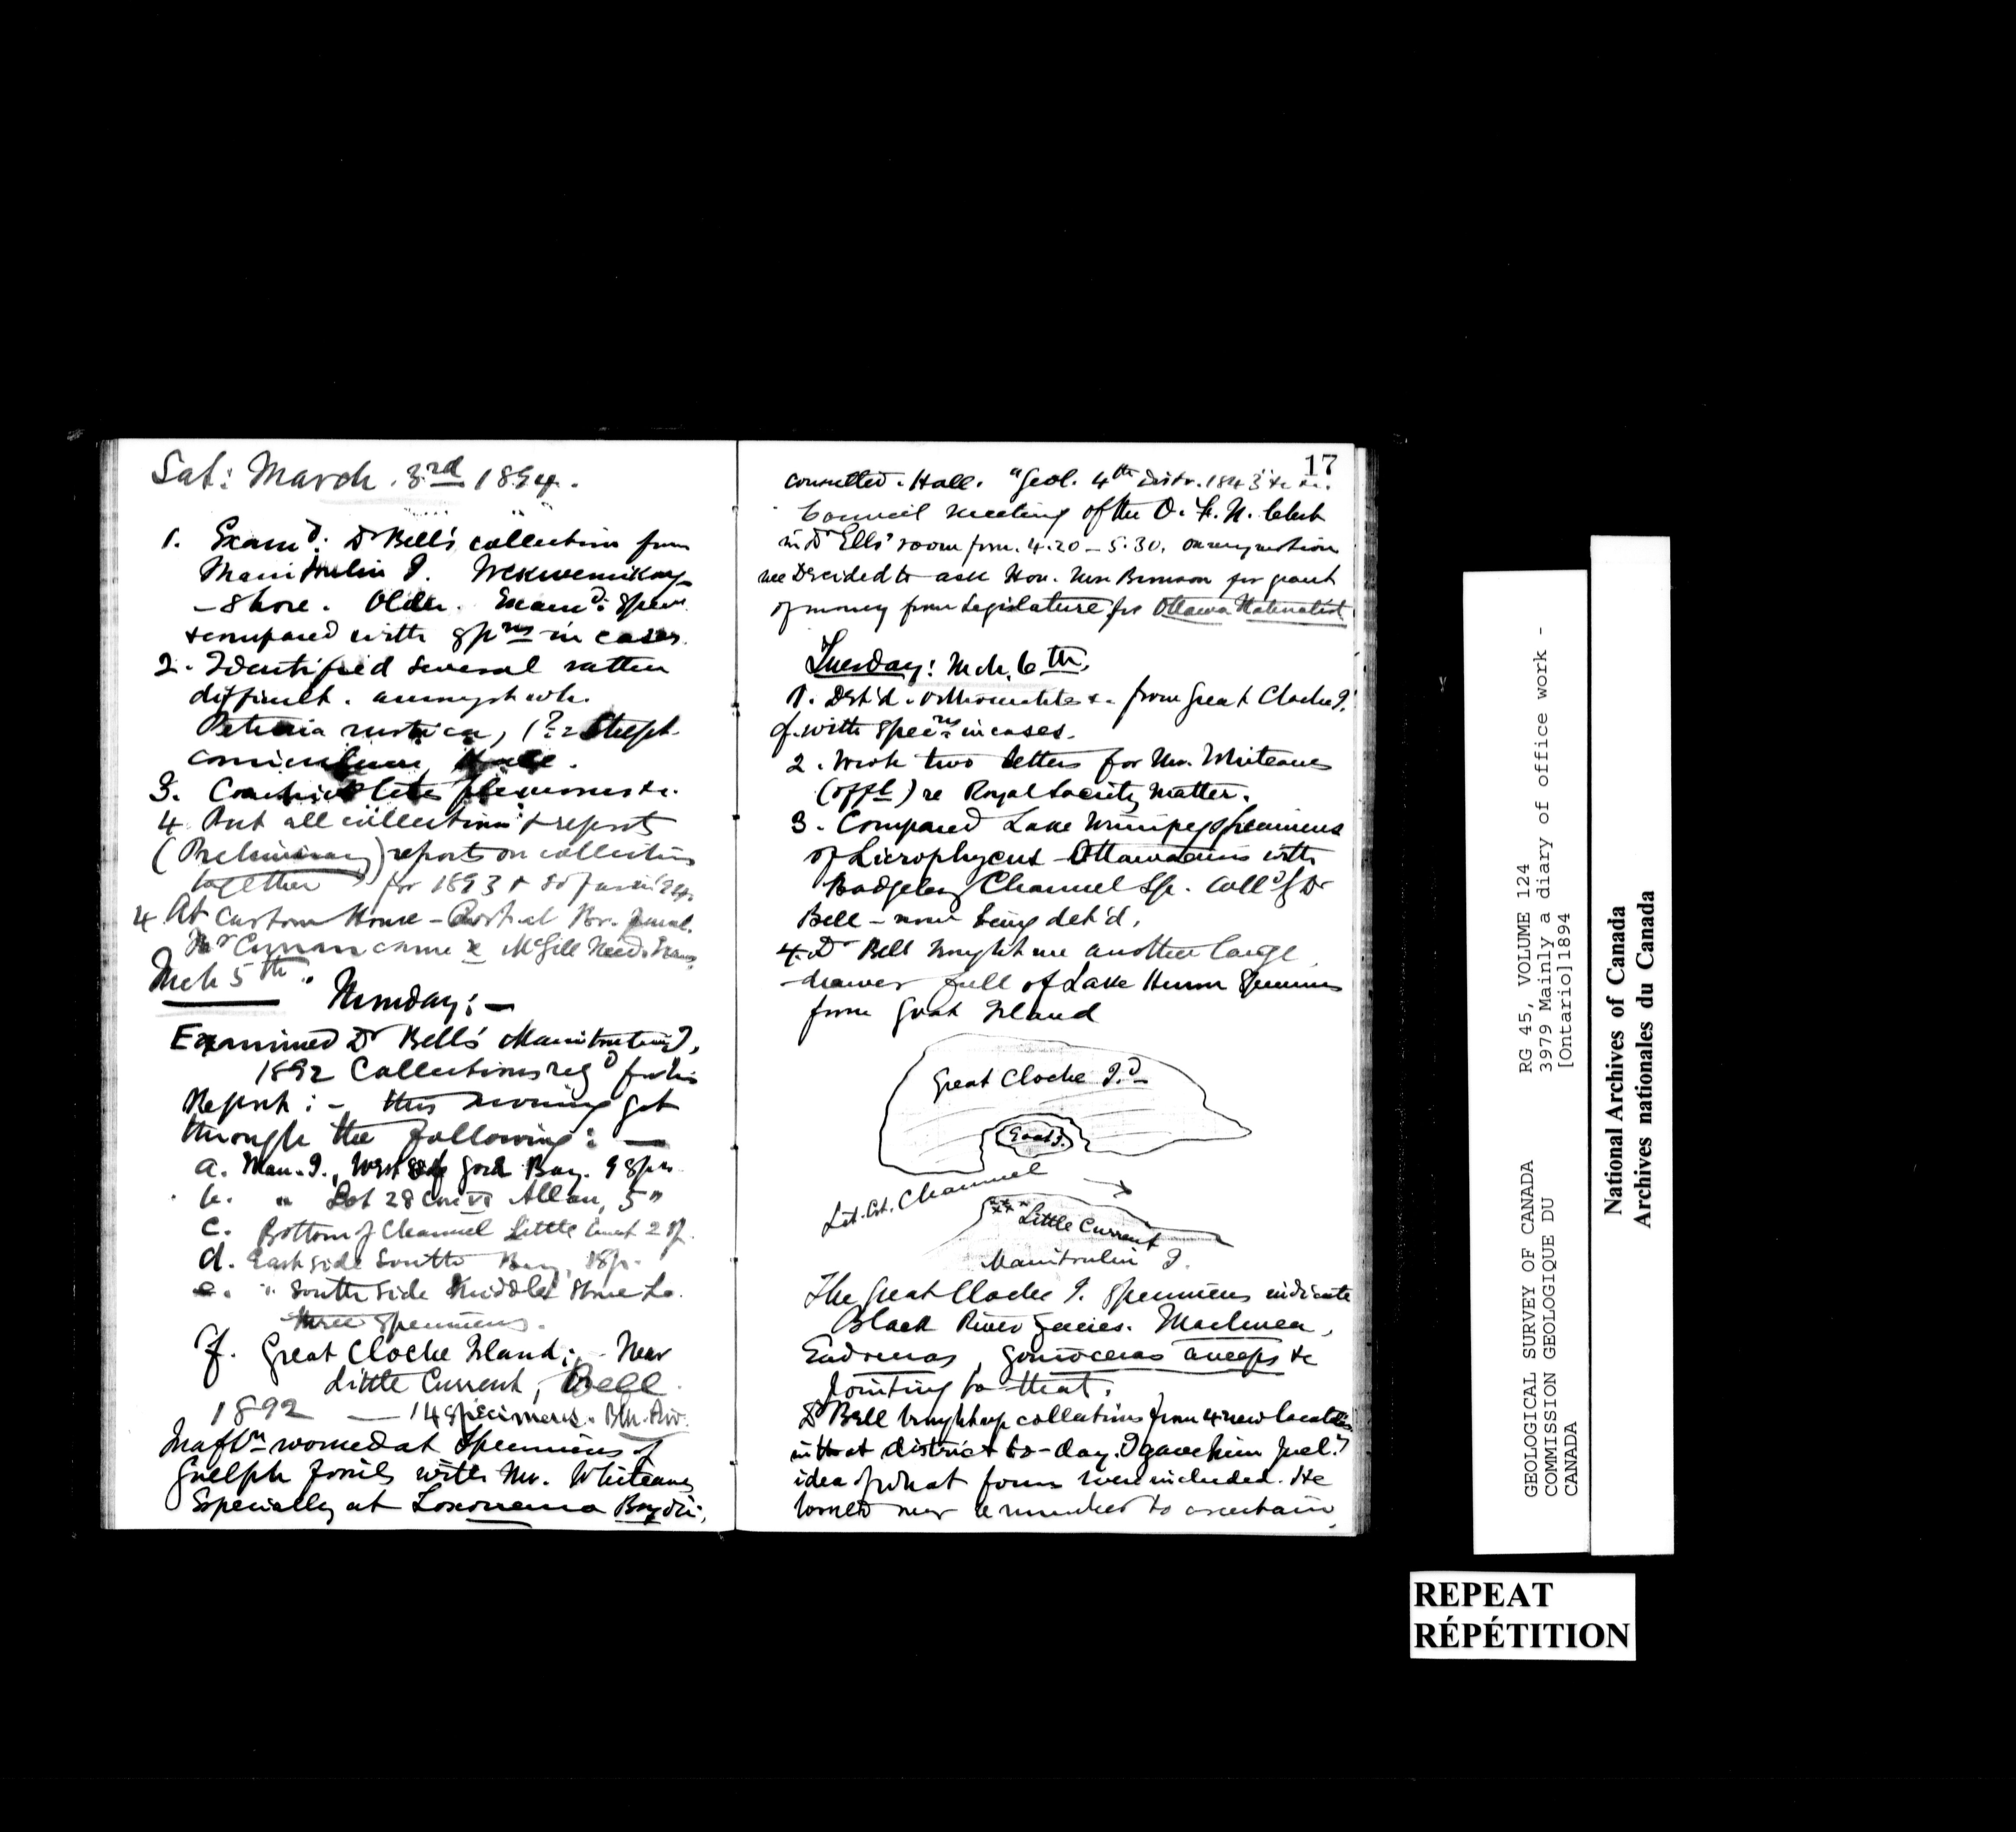 Sat: March. 3rd 1894.
1. Examd. Dr Bell's collection from
Manitoulin I. Wekwemikong
- Shore. Older. Examd: Spec
& compared with spns in cases.
2. Identified several rather
difficult. amongst wh.
Petraia rustica, (? = Strept.
corniculum Hall.
3.
4 Put all collections & reports
(Preliminary) reports on collections
together for 1893 & so far in '94.
4 At Custom House -
came McGill
Mch 5th.
Monday: -
Examined Dr Bell's Manitoulin I.
1892 Collections reqd for his
Report: - this morning got
through the following: —
a. Man. I., West side Gore Bay. 9 spns
b. " Lot 28 Con VI Allan, 5 "
c. Bottom of Channel Little Curnt 2 sp.
d. East side South Bay, 18p.
e. " South side Middle
three specimens.
f. Great Cloche Island; - Near
Little Current, Bell
1892 — 14 specimens. Blk. Riv.
In aftn worked at specimens of
Guelph fossils with Mr. Whiteaves
Especially at Loxonema Boydii,
17
consulted. Hall. "Geol. 4th Distr. 1843" &c &c.
Council meeting of the O. F. N. Club
in Dr Ells' room from. 4.20 - 5.30. on my motion
we Decided to ask Hon. Mr. Bronson for grant
of money from Legislature for Ottawa Naturalist.
Tuesday: Mch. 6th.
1. Det'd. &. from Great Cloche I.
cf. with specns in cases.
2. Wrote two letters for Mr. Whiteaves
(offl) re Royal Society Matter.
3. Compared Lake Winnipeg specimens
of Licrophycus Ottawaensis with
Badgeley Channel Sp. Colld by Dr
Bell - now being det'd.
4. Dr Bell brought me another large
drawer full of Lake Huron Specimens
from Goat Island
Great Cloche Id.
Goat I.
Lit. Crt. Channel
Little Current
Manitoulin I.
The Great Cloche I. specimens indicate
Black River facies. Maclurea,
Endoceras, Gonioceras anceps &c
pointing to that.
Dr Bell brought up collections from 4 new localities
in that district to-day. I gave him
idea of what forms were included. He
to ascertain
GEOLOGICAL SURVEY OF CANADA
COMMISSION GEOLOGIQUE DU
CANADA
RG 45, VOLUME 124
3979 Mainly a diary of office work -
[Ontario]1894
National Archives of Canada
Archives nationales du Canada
REPEAT
RÉPÉTITION